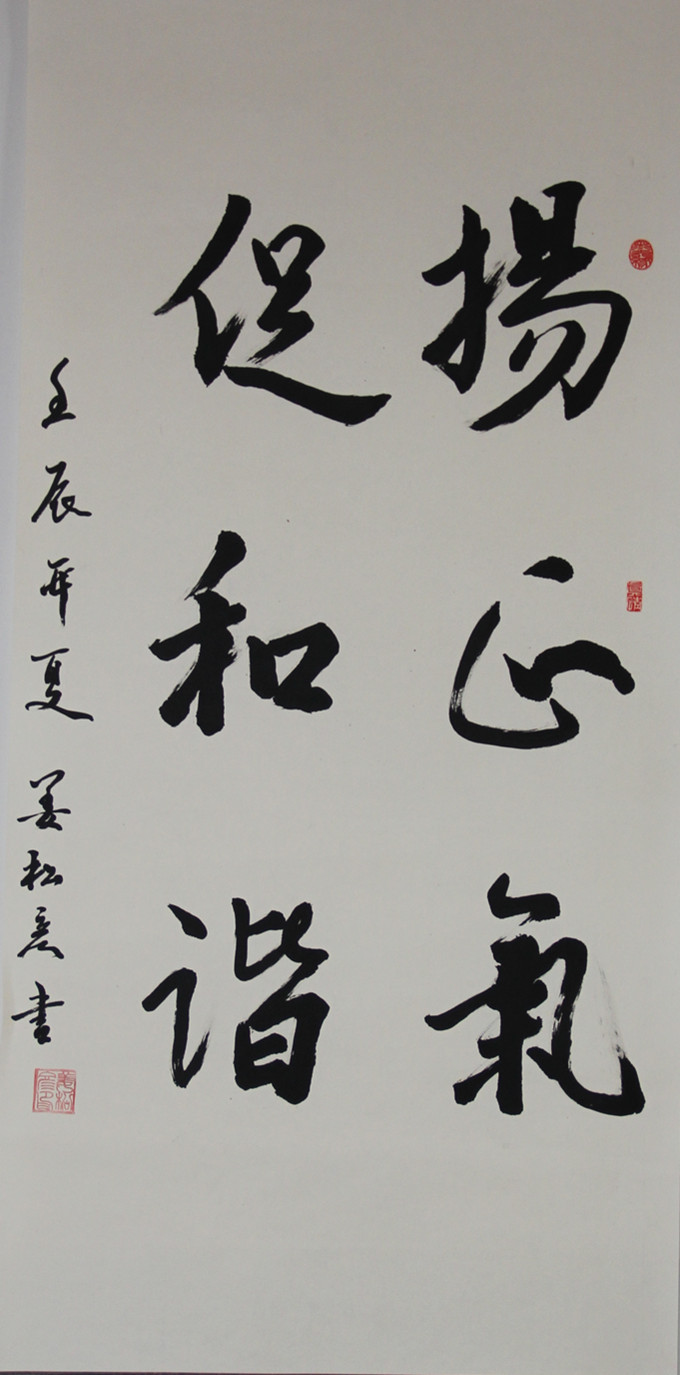 揚正氣
促和谐
壬辰年夏 姜松 書